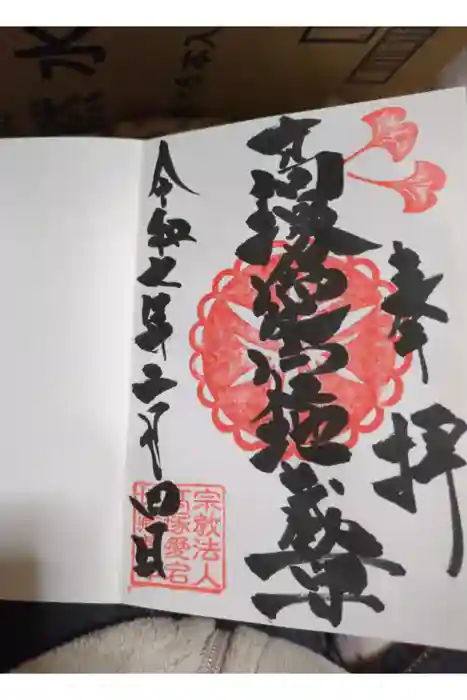 奉拝
高塚愛宕地蔵尊
令和七年二月四日
宗教法人
高塚愛宕